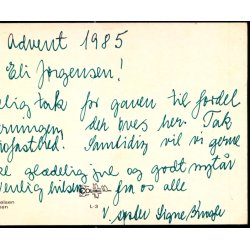 Advent 1985
Eli Jørgensen!
elig tak for gaven til fordel
der øves her. Tak
Samtidig vil vi gerne
glædelig jul og godt nytår
venlig hilsen fra os alle
v. søster Signe
L-3